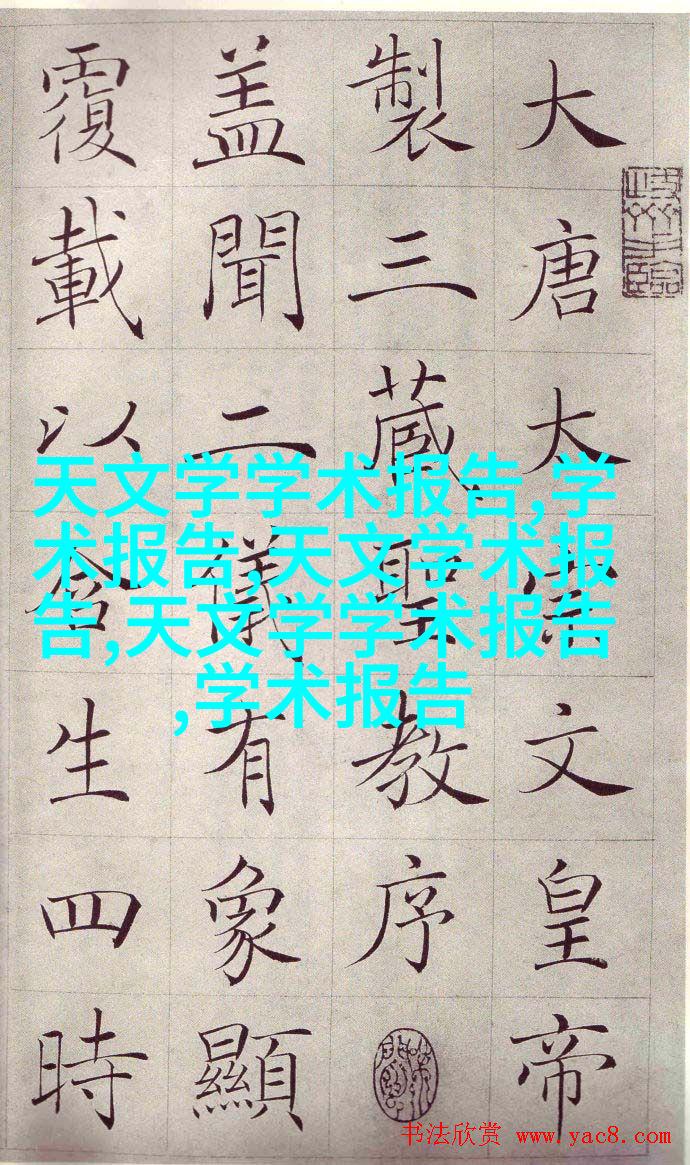 大唐太宗文皇帝
製三藏聖教序
盖聞二儀有象顯
覆載以含生四時
天文学学术报告,学
术报告,天文学术报
告,天文学学术报告
,学术报告
书法欣赏 www.yac8.com